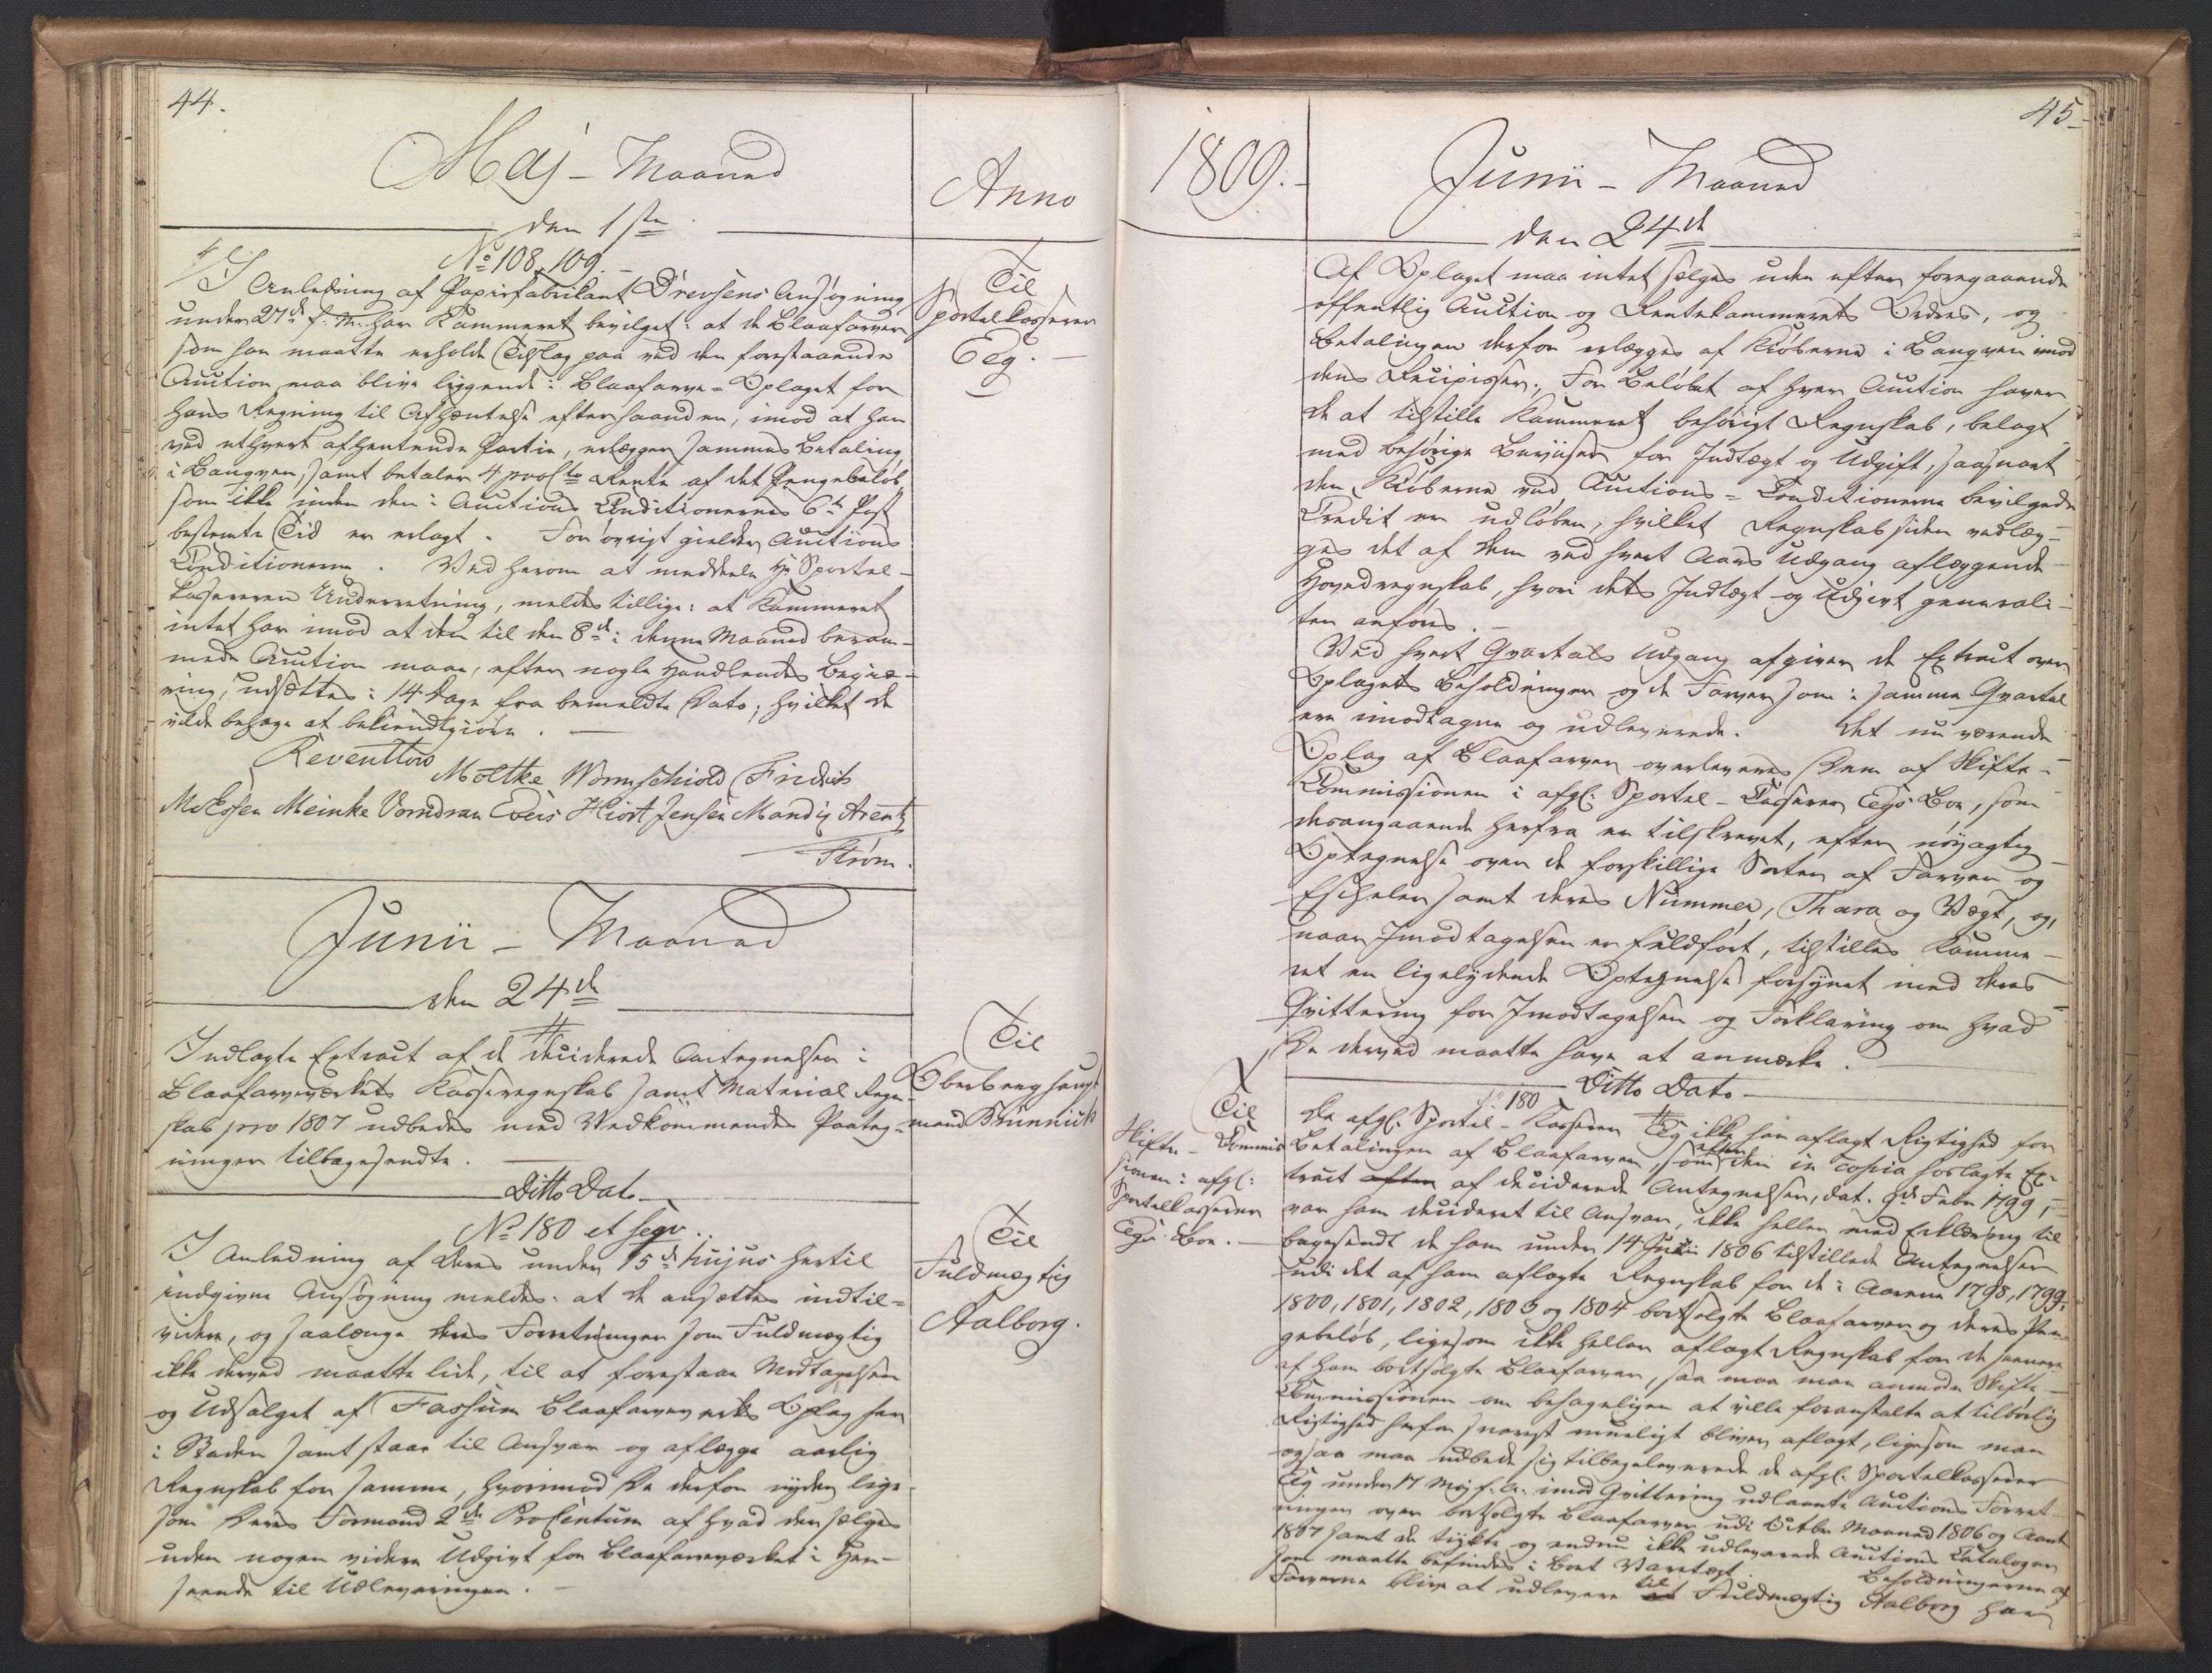 44.
Maj - Maaned
Anno
den 1ste
No 108, 109.
Til
Sportelkasserer
Eeg.
I Anledning af Papiirfabrikant Drevsens Ansøgning
under 27de f. M. har Kammeret bevilget: at de Blaafarver
som han maatte erholde Tilslag paa ved den forestaaende
Auction, maa blive liggende i Blaafarve-Oplaget for
hans Regning til Afhæntelse efterhaanden, imod at han
ved ethvert afhentende Partie, erlægger sammes Betaling
i Banqven, samt betaler 4 proCto Rente af det Pengebeløb
som ikke inden den i Auctions Conditionernes 6te Post
bestemte Tid er erlagt. For øvrigt gielder Auctions
Conditionerne. Ved herom at meddele Hr Sportel-
kassereren Underretning, meldes tillige: at Kammeret
intet har imod at den til den 8de i denne Maaned beram-
mede Auction maae, efter nogle Handlendes Begiæ-
ring, udsættes i 14 Dage fra bemeldte Dato; hvilket De
vilde behage at bekiendtgiøre.
Reventlow
Moltke Wormschiold Fridrich
Meinke Vorndran Evers Hiort Jensen Mandix Arentz
Strøm.
Junii - Maaned
den 24de
Til
Oberberghaupt
mand Brünnich
Indlagte Extract af de deciderede Antegnelser i
Blaafarveværkets Kasseregnskab samt Material Regn-
skab pro 1807 udbedes med Vedkommendes Paateg-
ninger tilbagesendte.
Ditto Dato
No 180 et seqv.
Til
Fuldmægtig
Aalborg.
I Anledning af Deres under 15de hujus hertil
indgivne Ansøgning meldes: at De ansættes indtil-
videre, og saalænge Deres Forretninger som Fuldmægtig
ikke derved maatte lide, til at forestaae Modtagelsen
og Udsalget af Fossum Blaafarveværks Oplag her
i Staden samt staae til Ansvar og aflægge aarlig
Regnskab for samme, hvorimod De derfor nyder lige
som Deres Formand 2de ProCentum af hvad der sælges
uden nogen videre Udgivt for Blaafarveværket i Hen-
seende til Udleveringen.
45
1809.
Junii - Maaned
den 24de
Af Oplaget maa intet sælges uden efter foregaaende
offentlig Auction og Rentekammerets Ordres, og
Betalingen derfor erlægges af Kiøberne i Banqven imod
dens Recipisser. For Beløbet af hver Auction haver
De at tilstille Kammeret behørigt Regnskab, belagt
med behørige Beviiser for Indtægt og Udgift, saasnart
den Kiøberne ved Auctions-Conditionerne bevilgede
Credit er udløben, hvilket Regnskab siden vedlæg-
ges det af Dem ved hvert Aars Udgang aflæggende
Hovedregnskab, hvori dets Indtægt og Udgivt generali-
ter anføres.
Ved hvert Qvartals Udgang afgiver De Extract over
Oplagets Beholdninger og de Farver som i samme Qvartal
ere imodtagne og udleverede. Det nu værende
Oplag af Blaafarver overleveres Dem af Skifte-
Commissionen i afgl. Sportel-Casserer Eegs Boe, som
desangaaende herfra er tilskrevet, efter nøyagtig
Optegnelse over de forskillige Sorter af Farver og
Eschelen samt deres Nummer, Thara og Vægt, og,
naar Imodtagelsen er fuldført, tilstilles Kamme-
ret en ligelydende Optegnelse forsynet med Deres
Qvittering for Imodtagelsen og Forklaring om hvad
De derved maatte have at anmærke.
Ditto Dato
No 180
Til
Skifte-Commis
sionen i afgl:
Sportelkasserer
Eegs Boe.
Da afgl. Sportel-Kasserer Eeg ikke har aflagt Rigtighed for
Betalingen af Blaafarver, som efter den in copia hoslagte Ex-
tract efter af deciderede Antegnelser, dat. 9de Febr 1799,
var ham decideret til Ansvar, ikke heller med Erklæring til
bagesendt de ham under 14 Junii 1806 tilstillede Antegnelser
udi det af ham aflagte Regnskab for de i Aarene 1798, 1799,
1800, 1801, 1802, 1803 og 1804 bortsolgte Blaafarver og deres Pen-
gebeløb, ligesom ikke heller aflagt Regnskab for de senere
af ham bortsolgte Blaafarver, saa maa man anmode Skifte-
Commissionen om behageligen at ville foranstalte at tilbørlig
Rigtighed herfor snarest mueligt bliver aflagt, ligesom man
ogsaa maa udbede sig tilbageleverede de afgl. Sportelkasserer
Eeg under 17 Maj f. A. imod Qvittering udlaante Auctions Forret-
ninger over bortsolgte Blaafarver udi Octbr Maaned 1806 og Aaret
1807 samt de trykte og endnu ikke udleverede Auctions Cataloger
som maatte befindes i Boets Varetægt. Beholdningerne af
Farverne blive at udlevere til Fuldmægtig Aalborg her